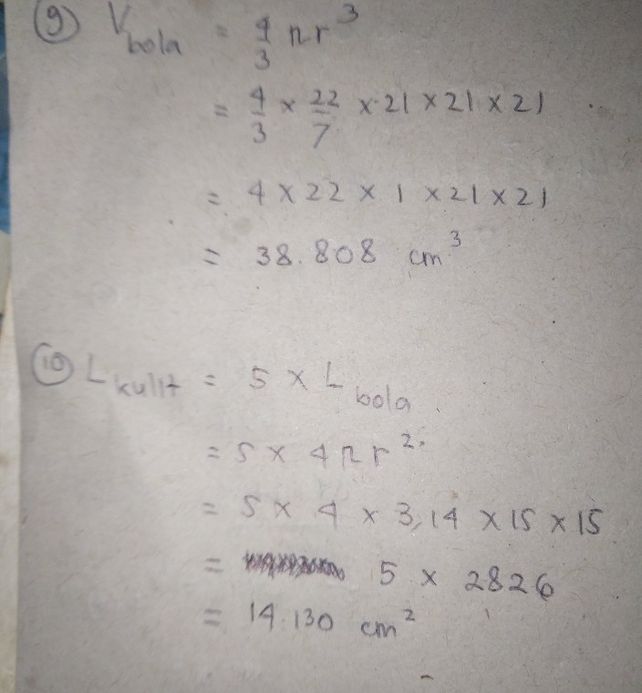 9) V bola = 4/3 πr³
= 4/3 × 22/7 × 21 × 21 × 21
= 4 × 22 × 1 × 21 × 21
= 38.808 cm³
10) L kulit = 5 × L bola
= 5 × 4πr².
= 5 × 4 × 3,14 × 15 × 15
= 5 × 2826
= 14.130 cm²